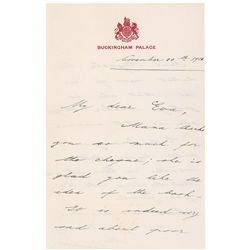 BUCKINGHAM PALACE
November 20th 19
My dear Eva,
Mama thanks
you so much for
the cheque; she is
glad you like the
idea of the book.
It is indeed very
sad about poor